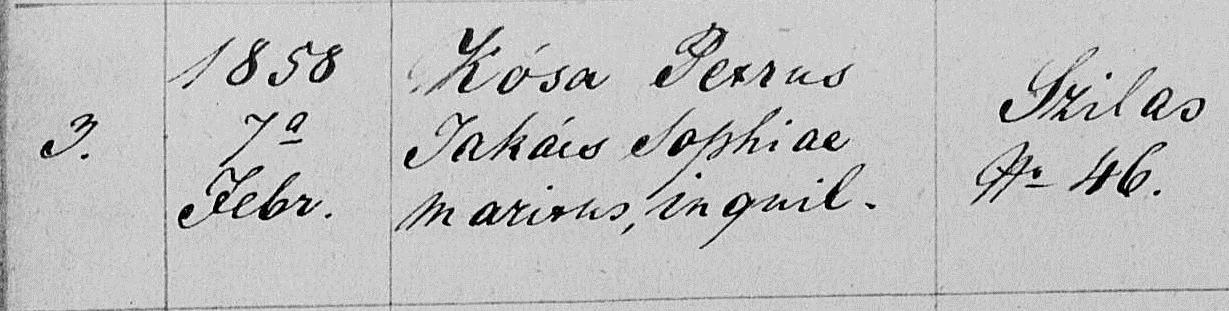 3.
1858
7ª
Febr.
Kósa Petrus
Takács Sophiae
maritus, inquil.
Szilas
Nr 46.